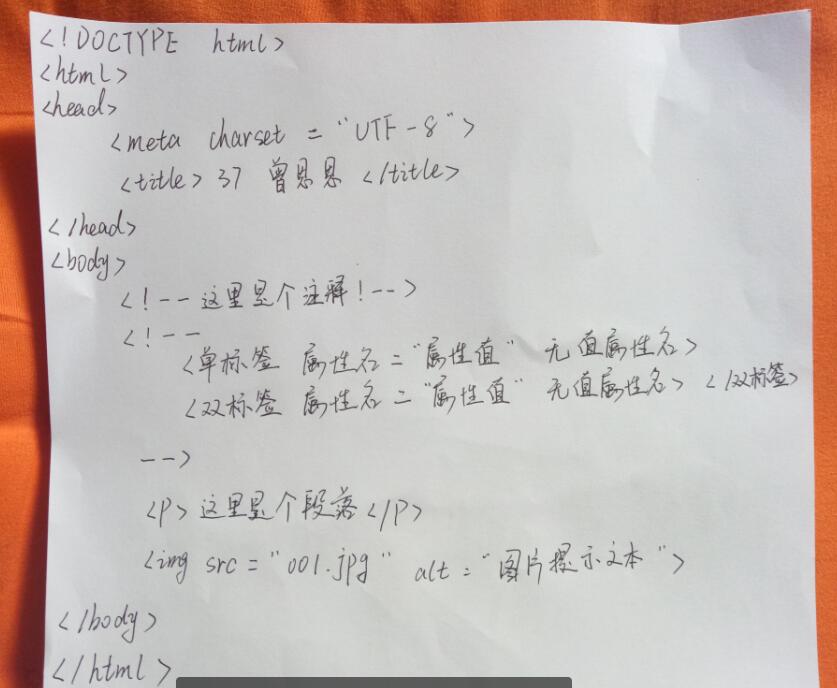 <!DOCTYPE html>
<html>
<head>
<meta charset = "UTF-8">
<title> 37 曾恩恩 </title>
</head>
<body>
<!--这里是个注释!-->
<!--
<单标签 属性名="属性值" 无值属性名>
<双标签 属性名="属性值" 无值属性名> </双标签>
-->
<p>这里是个段落</p>
<img src="001.jpg" alt="图片提示文本">
</body>
</html>